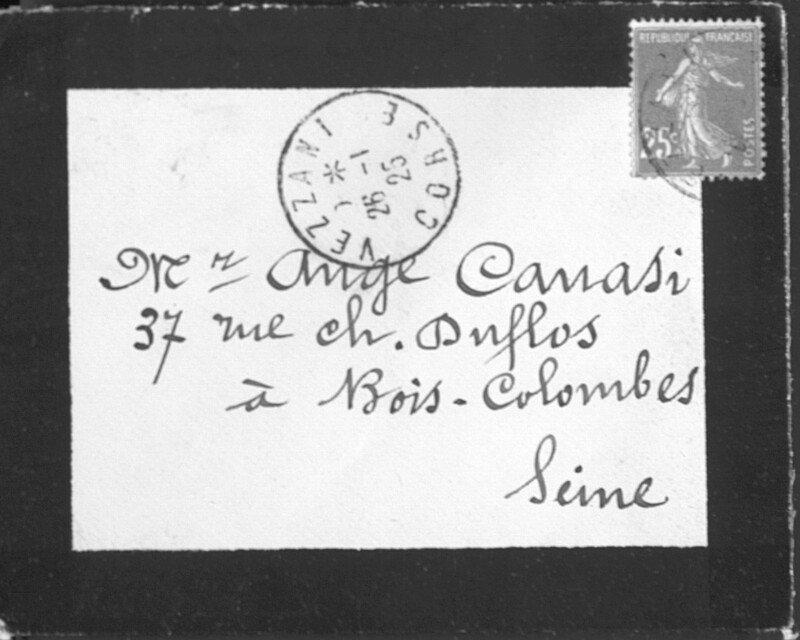 REPUBLIQUE FRANÇAISE
25c
POSTES
VEZZANI CORSE
*
25 -1
25
Mr Ange Canasi
37 rue ch. Duflos
à Bois-Colombes
Seine